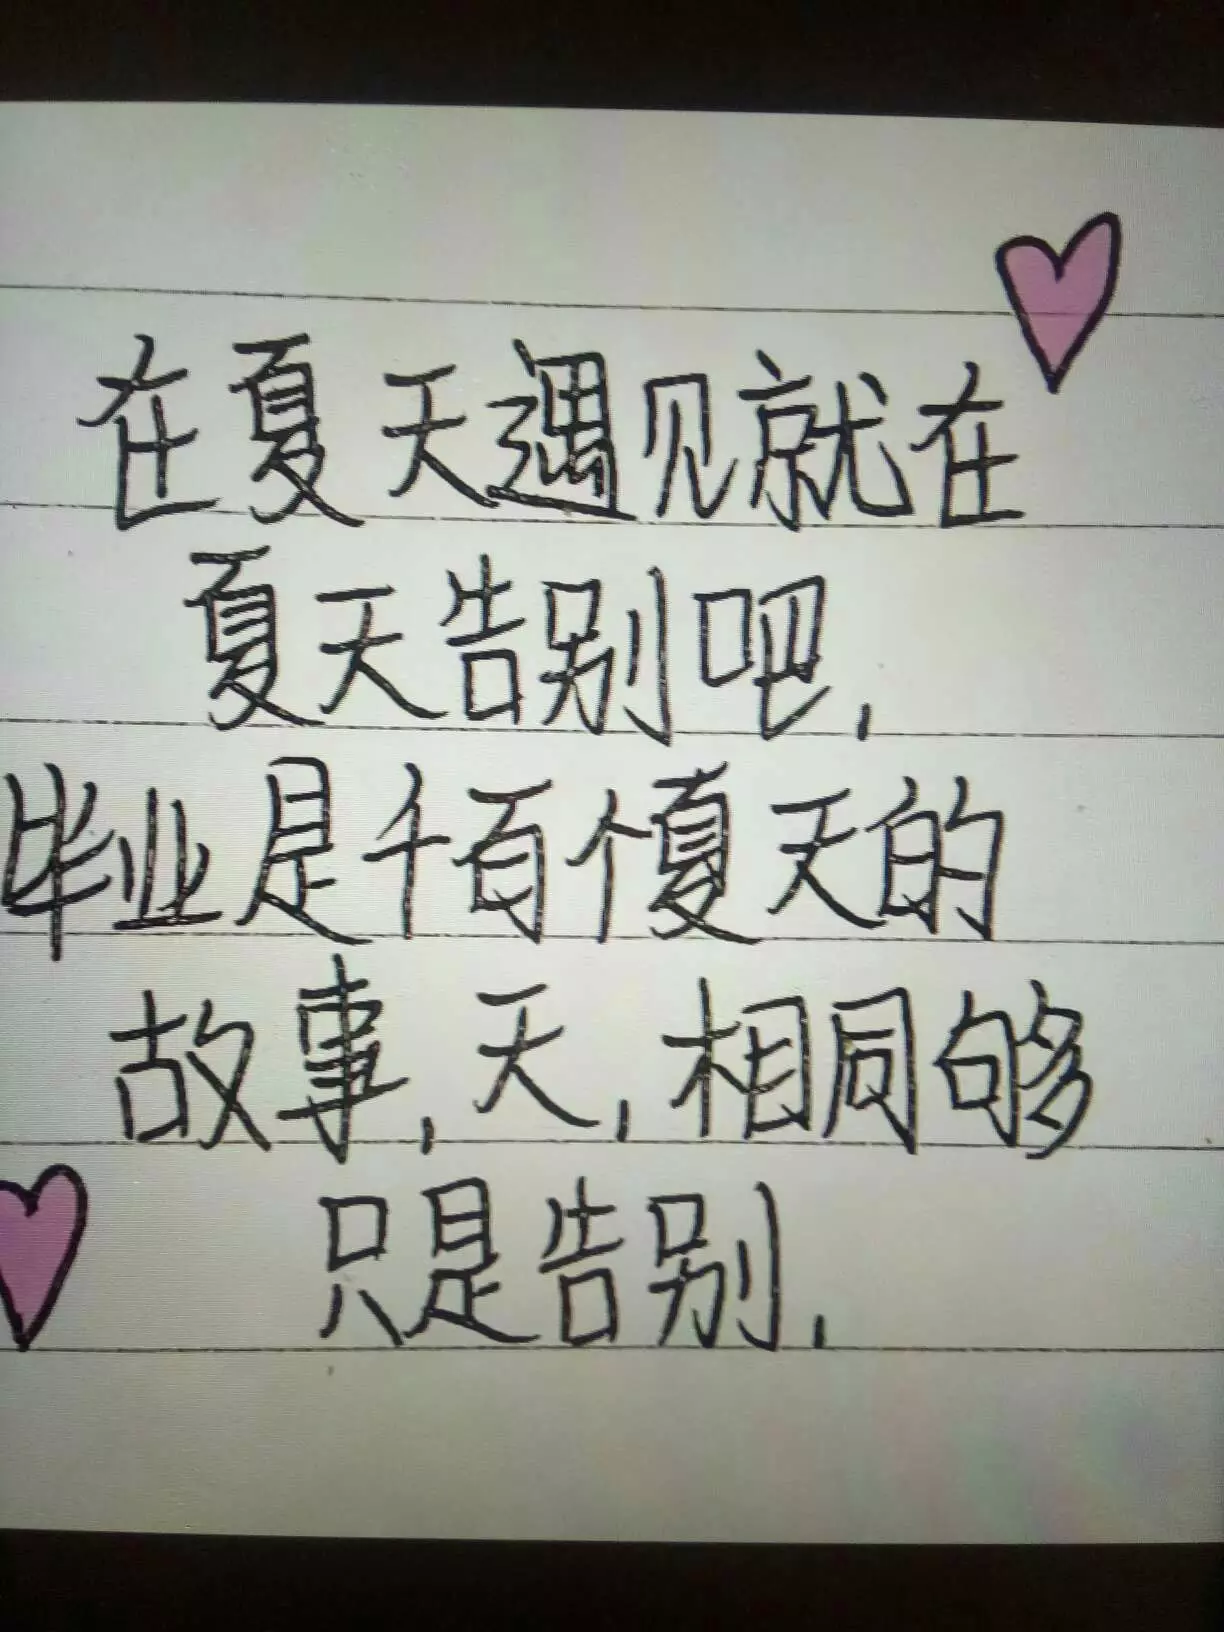 在夏天遇见就在
夏天告别吧,
毕业是千百个夏天的
故事,天,相同够
只是告别,